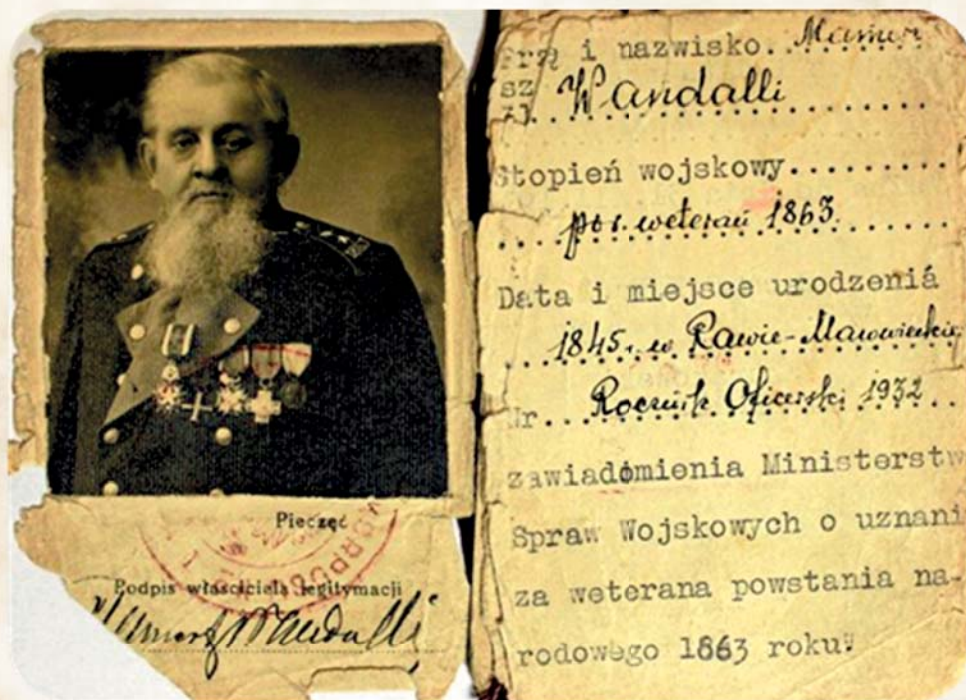 Pieczęć
Podpis właściciela legitymacji
Mamert Wandalli
i nazwisko. Mamer
Wandalli
Stopień wojskowy
por. weteran 1863
Data i miejsce urodzenia
1845. w Rawie-Mazowieckiej
Nr. Rocznik Oficerski 1932
zawiadomienia Ministerstw
Spraw Wojskowych o uznani
za weterana powstania na-
rodowego 1863 roku